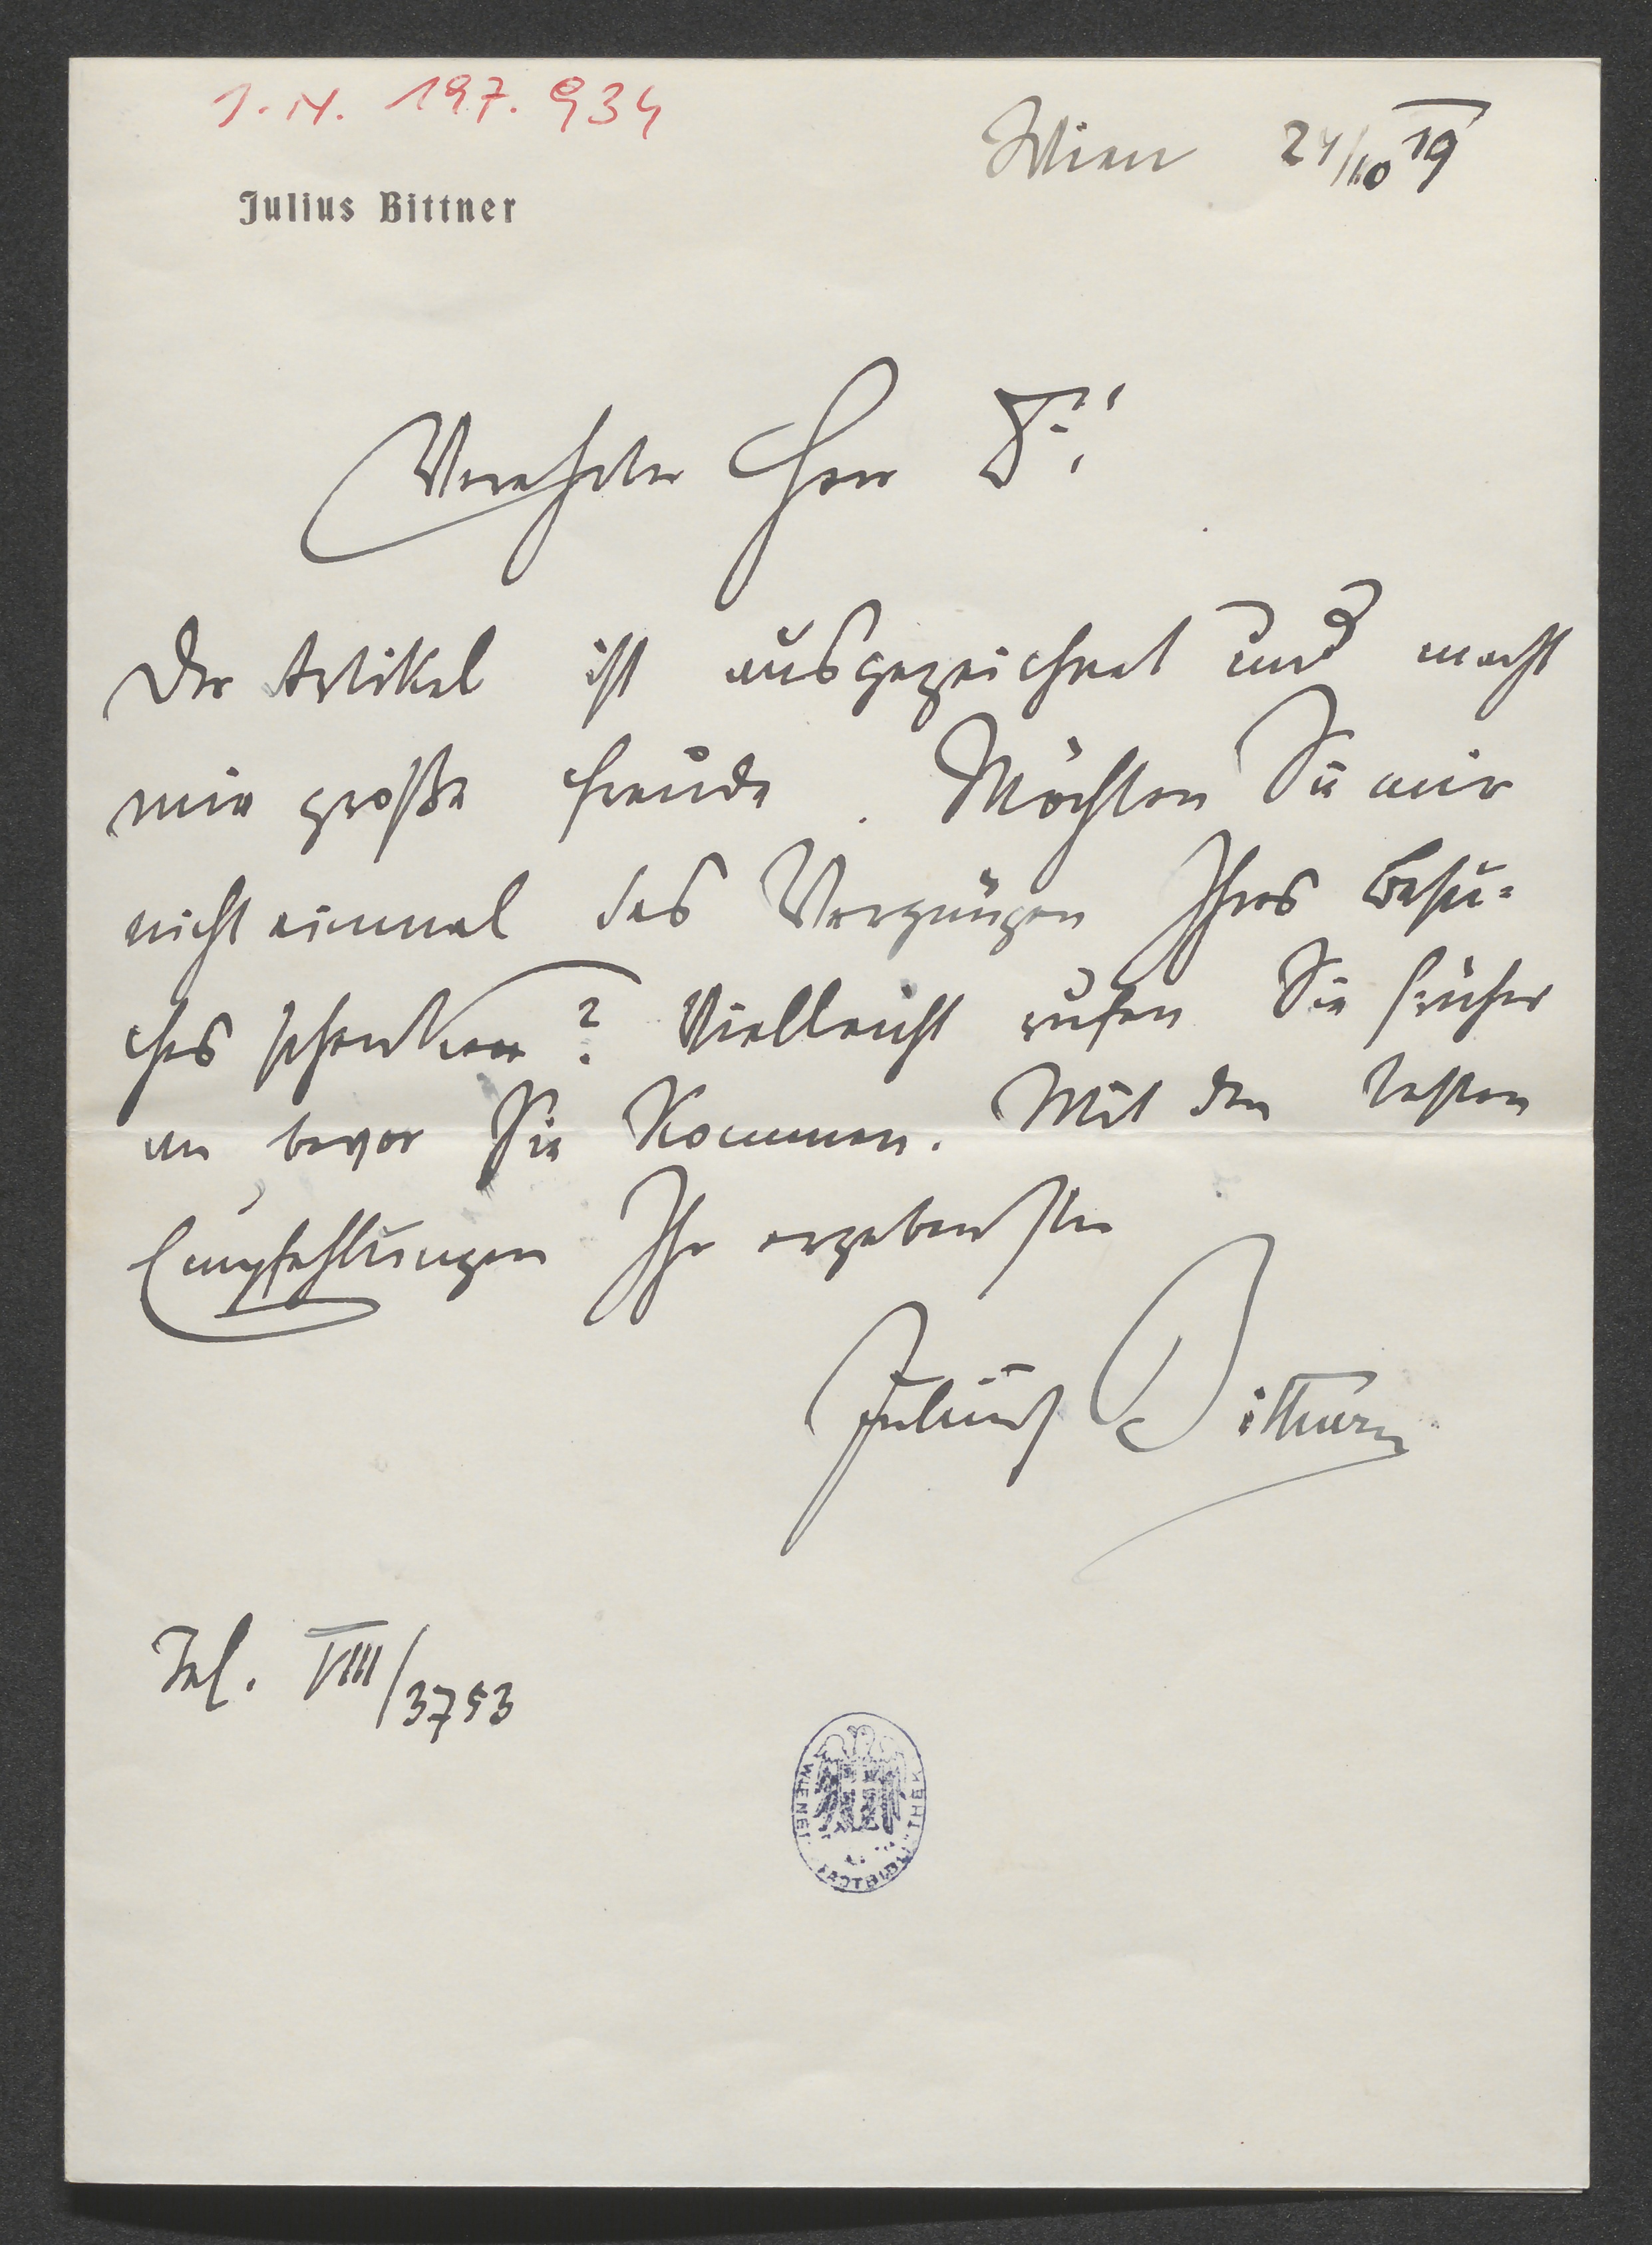 I. N. 197.934
Wien 24/10 19
Julius Bittner
Verehrter Herr Dr!
Der Artikel ist ausgezeichnet und macht
mir große Freude. Möchten Sie mir
nicht einmal das Vergnügen Ihres Besu-
ches schenken? Vielleicht rufen Sie früher
an bevor Sie kommen. Mit den besten
Empfehlungen Ihr ergebenster
Julius Bittner
Tel. VIII/3753
WIENER STADTBIBLIOTHEK